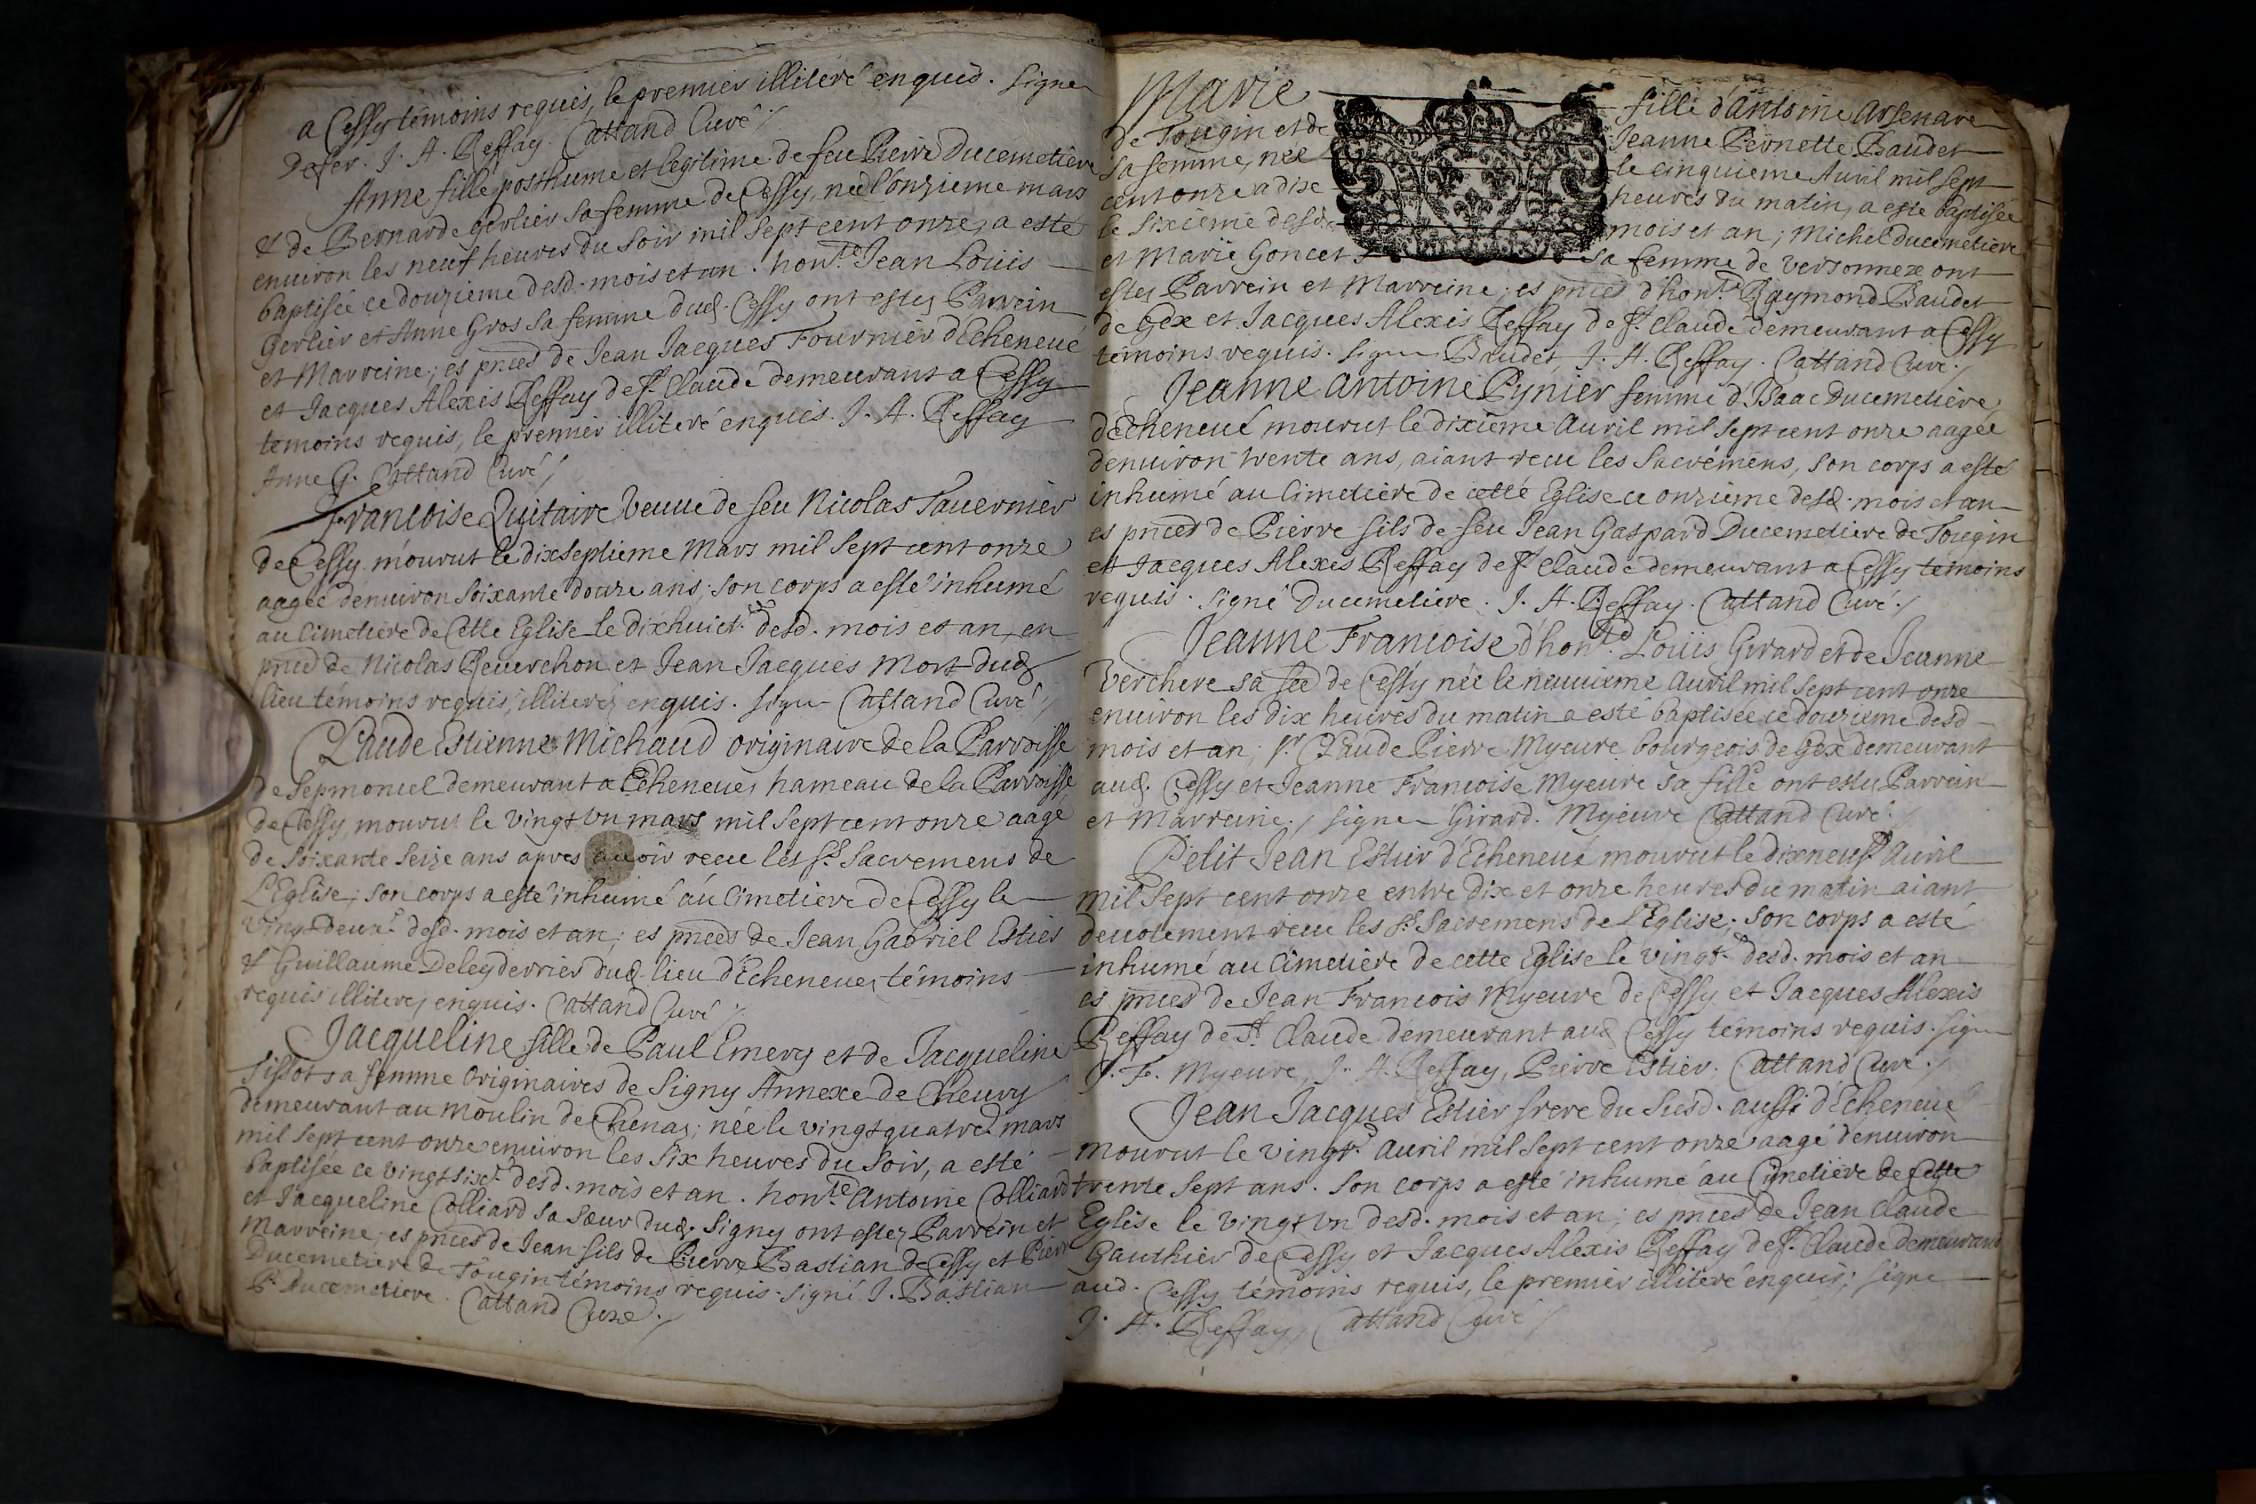 a Cessy témoins requis, le premier illiteré enquis. signe
Defer. J. A. Reffay. Cattand Curé /
Anne fille posthume et legitime de feu Pierre Ducemetiere
& de Bernarde Gerlier sa femme de Cessy, née l'onzieme mars
enuiron les neuf heures du soir mil sept cent onze, a esté
baptisée ce douzieme desd. mois et an. hon.te Jean Loüis
Gerlier et Anne Gros sa femme dud. Cessy ont estez Parrein
et Marreine; es pnces de Jean Jacques Fournier d'Echeneué
et Jacques Alexis Reffay de St. Claude demeurant a Cessy
temoins requis, le premier illiteré enquis. J. A. Reffay
Anne G. Cattand Curé /
Francoise Quitaire Veuue de feu Nicolas Tauernier
de Cessy mourut le dixseptieme Mars mil sept cent onze
aagée denuiron soixante douze ans; son corps a esté inhumé
au Cimetiere de Cette Eglise le dixhuict.e desd. mois et an, en
pnce de Nicolas Reuerchon et Jean Jacques Mort dud.
lieu témoins requis, illiterez enquis. signe Cattand Curé /
Claude Estienne Michaud originaire de la Parroisse
de Sepmoncel demeurant a Echeneuex hameau de la Parroisse
de Cessy mourut le vingt vn mars mil sept cent onze aagé
de soixante seize ans apres auoir receu les Sts Sacremens de
L'Eglise; son corps a esté inhumé au Cimetiere de Cessy le
vingt deux.e desd. mois et an; es pnces de Jean Gabriel Estier
& Guillaume Deleyderrier dud. lieu d'Echeneuex témoins
requis illiterez enquis. Cattand Curé /
Jacqueline fille de Paul Emery et de Jacqueline
Sissot sa femme Originaires de Signy Annexe de Cheury
demeurant au Moulin de Chenaz; née le vingt quatre mars
mil sept cent onze enuiron les six heures du soir, a esté
baptisée ce vingt six.e desd. mois et an. hon.te Antoine Colliard
et Jacqueline Colliard sa sœur dud. Signy ont estez Parrein et
Marreine, es pnces de Jean fils de Pierre Bastian de Cessy et Pierre
Ducemetiere de Tougin témoins requis. signé J. Bastian
P. Ducemetiere. Cattand Curé. /
Marie fille d'Antoine Arsenare
de Tougin et de Jeanne Pernette Baudet
sa femme, née le cinquieme Auril mil sept
cent onze a dix heures du matin, a esté baptisée
le sixieme desd. mois et an; Michel Ducemetiere
et Marie Goncet sa femme de Versonnex ont
estez Parrein et Marreine; es pnces d'hon.te Raymond Baudet
de Gex et Jacques Alexis Reffay de St. Claude demeurant a Cessy
témoins requis. signe Baudet, J. A. Reffay. Cattand Curé. /
Jeanne Antoine Pynier femme d'Isaac Ducemetiere
d'Echeneué mourut le dixieme Auril mil sept cent onze aagée
denuiron trente ans, aiant receu les Sacrémens, son corps a esté
inhumé au Cimetiere de cette Eglise ce onzieme desd. mois et an
es pnces de Pierre fils de feu Jean Gaspard Ducemetiere de Tougin
et Jacques Alexis Reffay de St. Claude demeurant a Cessy témoins
requis. signé Ducemetiere. J. A. Reffay. Cattand Curé. /
Jeanne Francoise d'hon.te Loüis Girard et de Jeanne
Verchere sa fée de Cessy née le neuuieme Auril mil sept cent onze
enuiron les dix heures du matin a esté baptisée ce douzieme desd.
mois et an; Sr. Claude Pierre Myeure bourgeois de Gex demeurant
aud. Cessy et Jeanne Francoise Myeure sa fille ont estez Parrein
et Marreine. / signe Girard. Myeure Cattand Curé.
Petit Jean Estier d'Echeneué mourut le dixneuf.e Auril
mil sept cent onze entre dix et onze heures du matin aiant
deuotement receu les Sts. Sacremens de L'Eglise; son corps a esté
inhumé au Cimetiere de cette Eglise le vingt.e desd. mois et an
es pnces de Jean Francois Myeure de Cessy et Jacques Alexis
Reffay de St. Claude demeurant aud. Cessy témoins requis. signe
J. F. Myeure, J. A. Reffay, Pierre Estier. Cattand Curé. /
Jean Jacques Estier frere du susd. aussi d'Echeneué
mourut le vingt.e Auril mil sept cent onze aagé denuiron
trente sept ans. son corps a esté inhumé au Cimetiere de Cette
Eglise le vingt vn desd. mois et an; es pnces de Jean Claude
Gauthier de Cessy et Jacques Alexis Reffay de St. Claude demeurant
aud. Cessy témoins requis, le premier illiteré enquis; signe
J. A. Reffay, Cattand Curé /